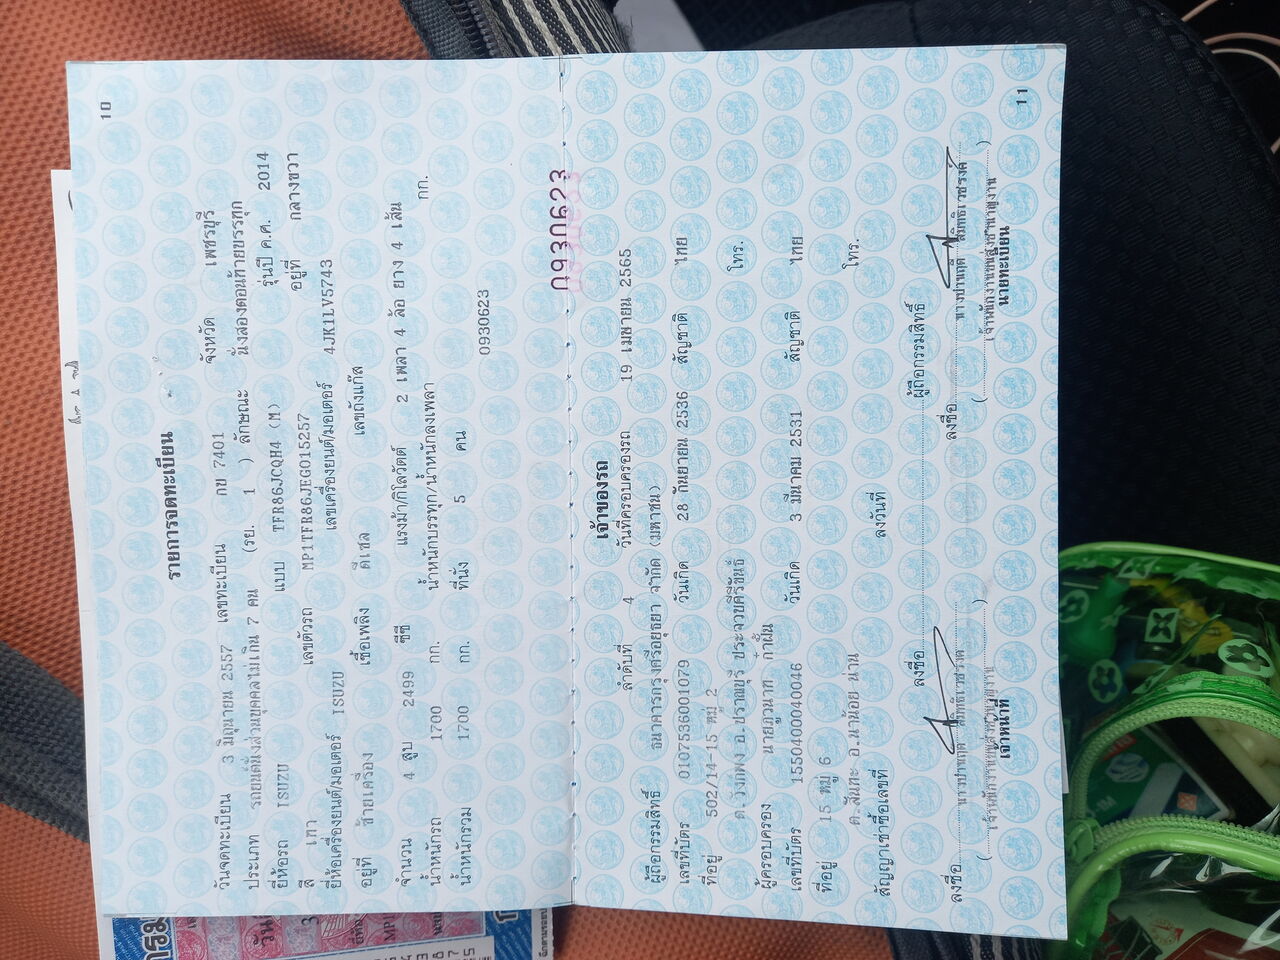 10
รายการจดทะเบียน
วันจดทะเบียน 3 มิถุนายน 2557 เลขทะเบียน กข 7401 จังหวัด เพชรบุรี
ประเภท รถยนต์นั่งส่วนบุคคลไม่เกิน 7 คน (รย. 1 ) ลักษณะ นั่งสองตอนท้ายบรรทุก
ยี่ห้อรถ ISUZU แบบ TFR86JCQH4 (M) รุ่นปี ค.ศ. 2014
สี เทา เลขตัวรถ MP1TFR86JEG015257 อยู่ที่ กลางขวา
ยี่ห้อเครื่องยนต์/มอเตอร์ ISUZU เลขเครื่องยนต์/มอเตอร์ 4JK1LV5743
อยู่ที่ ซ้ายเครื่อง เชื้อเพลิง ดีเซล เลขถังแก๊ส
จำนวน 4 สูบ 2499 ซีซี แรงม้า/กิโลวัตต์ 2 เพลา 4 ล้อ ยาง 4 เส้น
น้ำหนักรถ 1700 กก. น้ำหนักบรรทุก/น้ำหนักลงเพลา กก.
น้ำหนักรวม 1700 กก. ที่นั่ง 5 คน
0930623
0930623
เจ้าของรถ
ลำดับที่ 4 วันที่ครอบครองรถ 19 เมษายน 2565
ผู้ถือกรรมสิทธิ์ ธนาคารกรุงศรีอยุธยา จำกัด (มหาชน)
เลขที่บัตร 0107536001079 วันเกิด 28 กันยายน 2536 สัญชาติ ไทย
ที่อยู่ 502/14-15 หมู่ 2 โทร.
ต.วังก์พง อ.ปราณบุรี ประจวบคีรีขันธ์
ผู้ครอบครอง นายภูวนาท ก๋าฝั้น
เลขที่บัตร 1550400040046 วันเกิด 3 มีนาคม 2531 สัญชาติ ไทย
ที่อยู่ 15 หมู่ 6 โทร.
ต.สันทะ อ.นาน้อย น่าน
สัญญาเช่าซื้อเลขที่ ลงวันที่
ลงชื่อ ผู้ถือกรรมสิทธิ์
ลงชื่อ นางปานฤดี ลงชื่อ นางปานฤดี
( เจ้าพนักงานขนส่งชำนาญงาน ) ( เจ้าพนักงานขนส่งชำนาญงาน )
เจ้าหน้าที่ นายทะเบียน
11